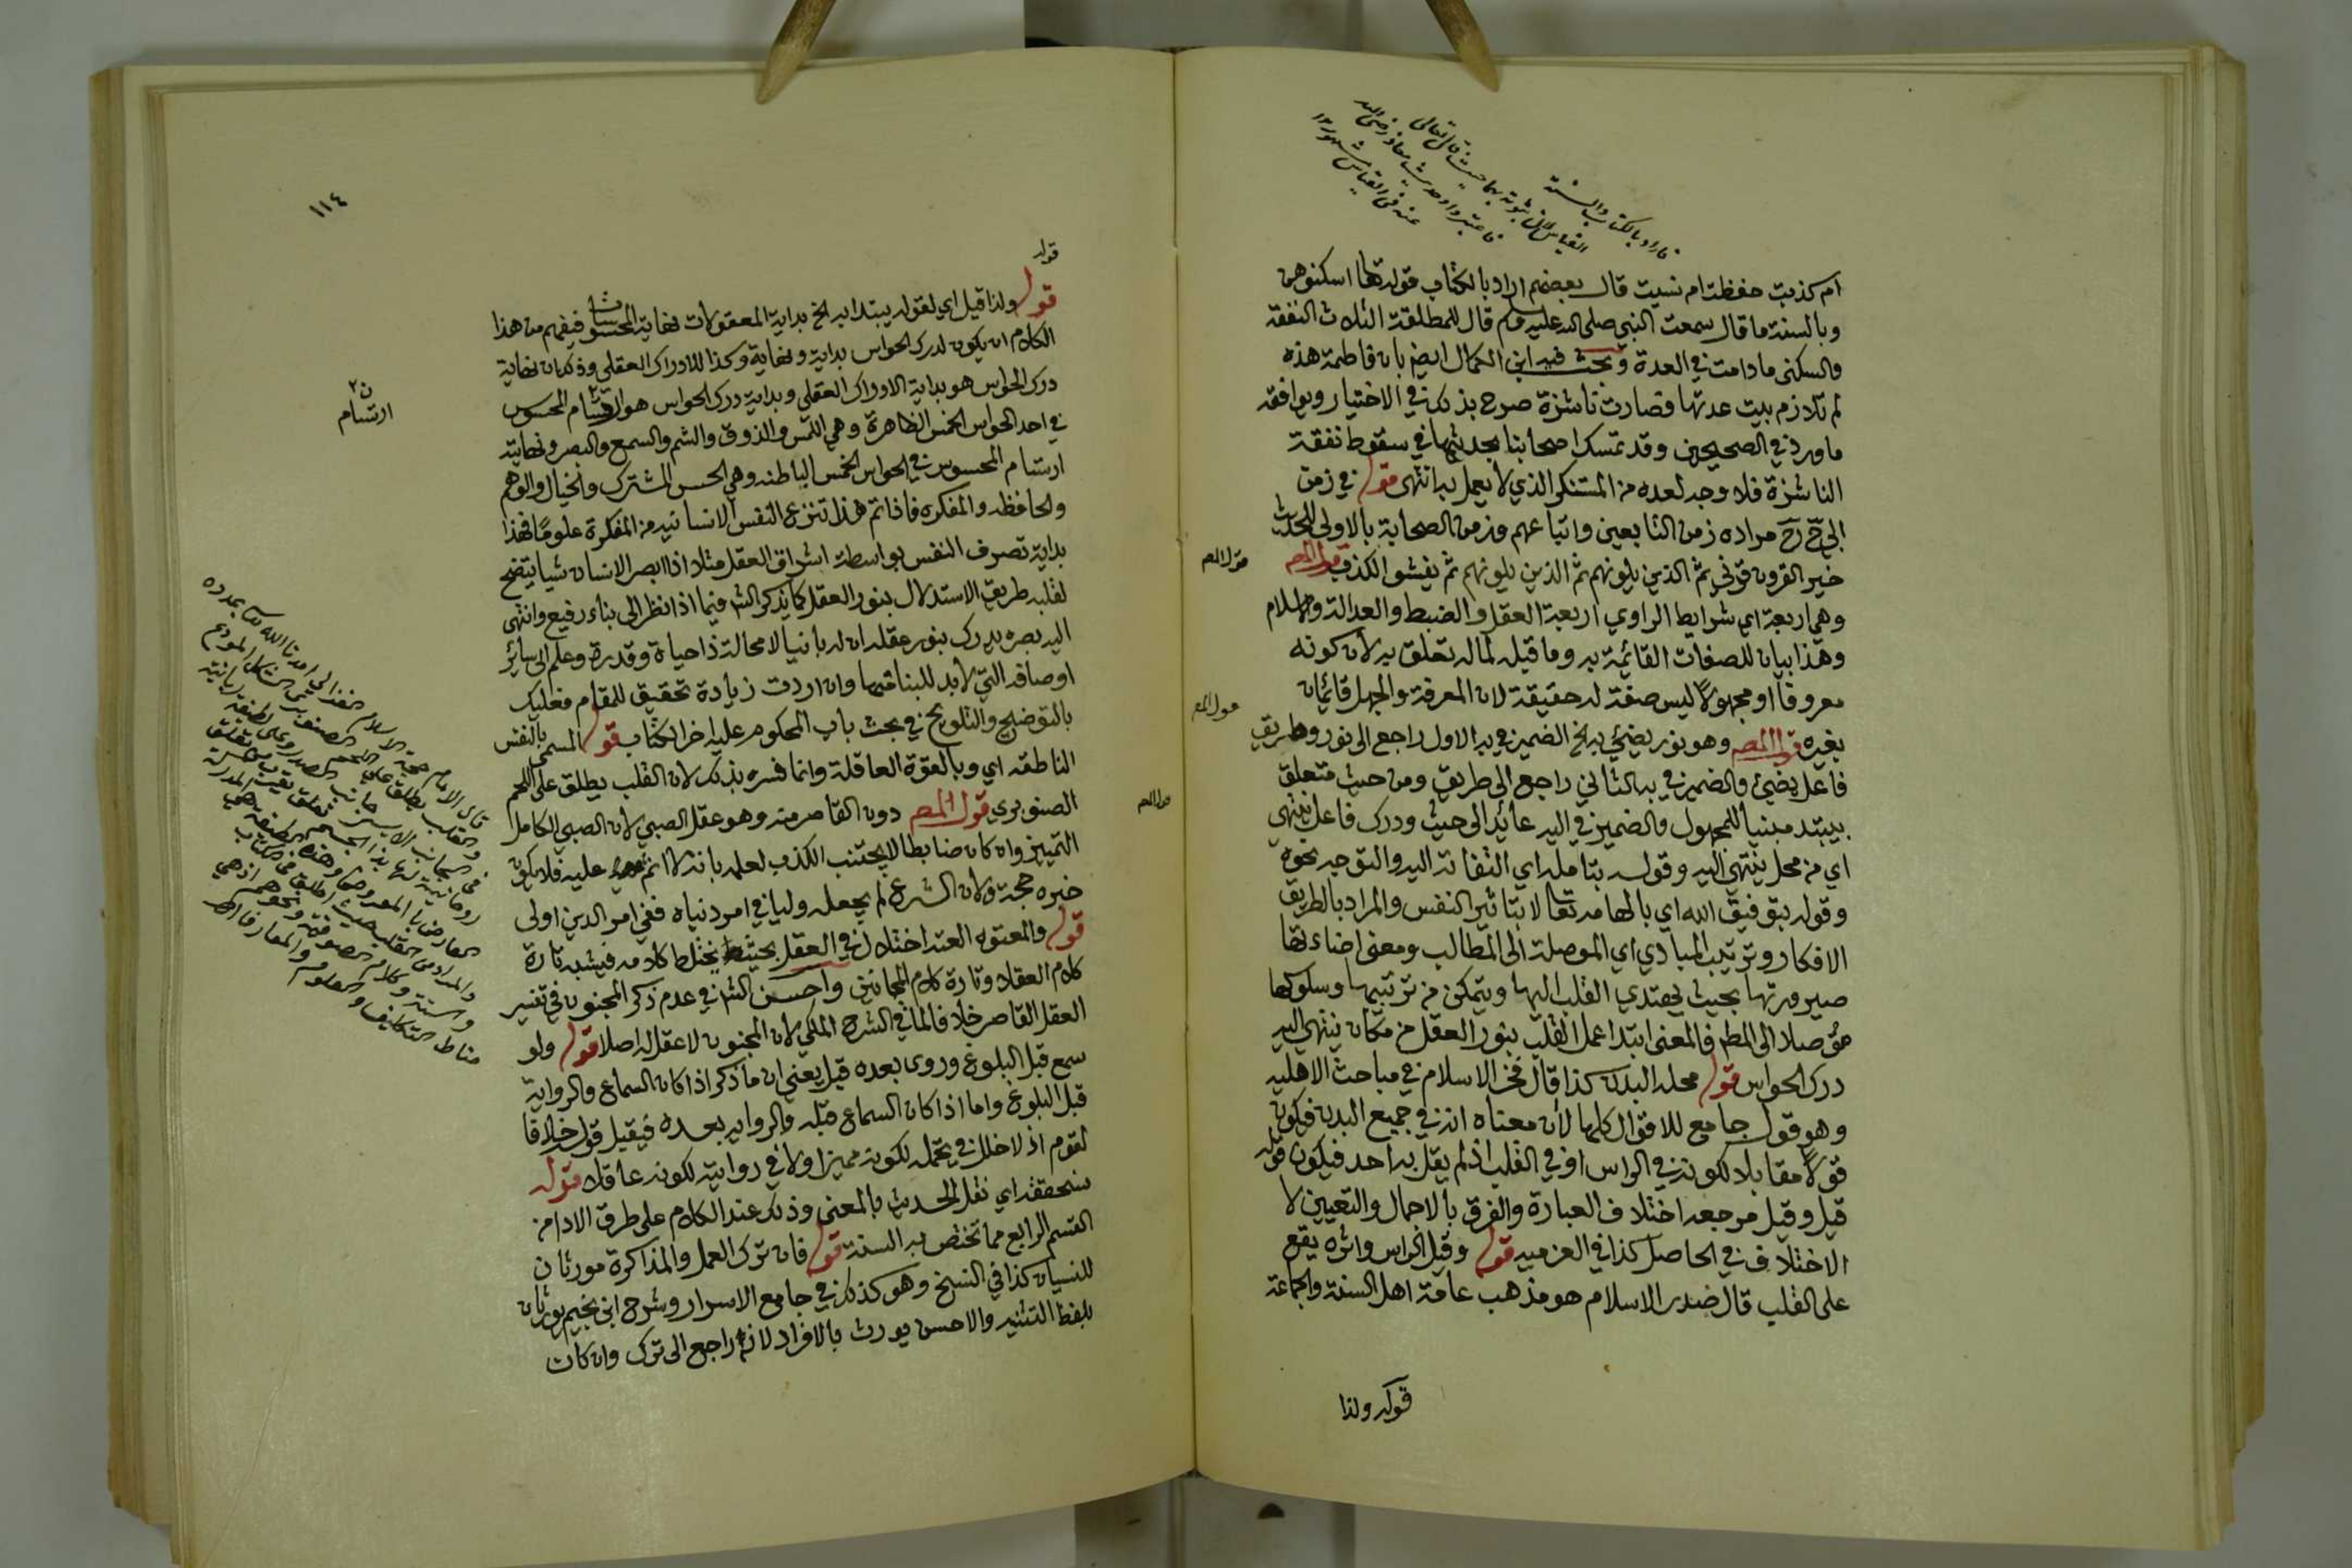 ام كذبت حفظت ام نسيت قال بعضهم اراد بالكتاب قوله تعالى اسكنوهن
وبالسنة ما قال سمعت النبي صلى الله عليه وسلم قال للمطلقة الثلاث النفقة
والسكنى ما دامت في العدة وبحث فيه ابن الكمال ايضا بان فاطمة هذه
لم تلازم بيت عدتها فصارت ناشزة صرح بذلك في الاختيار ويوافقه
ما ورد في الصحيحين وقد تمسك اصحابنا بحديثها في سقوط نفقة
الناشزة فلا وجه لعده من المستنكر الذي لا يعمل به انتهى قوله في زمن
ابي ح رح مراده زمن التابعين واتباعهم وزمن الصحابة بالاولى للحديث
خير القرون قرني ثم الذين يلونهم ثم الذين يلونهم ثم يفشو الكذب قول المص
وهي اربعة اي شرايط الراوي اربعة العقل والضبط والعدالة والاسلام
وهذا بيان للصفات القائمة به وما قبله لما له تعلق به لان كونه
معروفا او مجهولا ليس صفة له حقيقة لان المعرفة والجهل قائمان
بغيره قول المص وهو نور يضيئ به الخ الضمير في به الاول راجع الى نور وطريق
فاعل يضيئ والضمير في به الثاني راجع الى طريق ومن حيث متعلق
بيبتد مبنيا للمجهول والضمير في اليه عائد الى حيث ودرك فاعل ينتهي
اي من محل ينتهي اليه وقوله بتامله اي التفاته اليه والتوجه نحوه
وقوله بتوفيق الله اي بالهامه تعالى لا بتاثير النفس والمراد بالطريق
الافكار وترتيب المبادي اي الموصلة الى المطالب ومعنى اضاءتها
صيرورتها بحيث يهتدي القلب اليها ويتمكن من ترتيبها وسلوكها
موصلا الى المط فالمعنى ابتدا عمل القلب بنور العقل من مكان ينتهي اليه
درك الحواس قوله محله البدن كذا قال فخر الاسلام في مباحث الاهلية
وهو قول جامع للاقوال كلها لان معناه انه في جميع البدن فيكون
قولا مقابلا لكونه في الراس او في القلب اذ لم يقل به احد فيكون قوله
قيل وقيل مرجعه اختلاف العبارة والفرق بالاجمال والتعيين لا
الاختلاف في الحاصل كذا في العزمية قوله وقيل الراس واثره يقع
على القلب قال صدر الاسلام هو مذهب عامة اهل السنة والجماعة
قوله ولذا
فاراد بالكتاب والسنة
القياس لان ثبوته بهما حيث قال تعالى
فاعتبروا وحديث معاذ رضي الله
عنه في القياس مشهور ١٢
قول المص
قول المص
١١٤
قوله
قوله ولذا قيل اي لقوله يبتدا به الخ بداية المعقولات نهاية المحسوسات فيفهم من هذا
الكلام ان يكون لدرك الحواس بداية ونهاية وكذا للادراك العقلي وذكر ان نهاية
درك الحواس هو بداية الادراك العقلي وبداية درك الحواس هو ارتسام المحسوس
في احد الحواس الخمس الظاهرة وهي اللمس والذوق والشم والسمع والبصر ونهايته
ارتسام المحسوس في الحواس الخمس الباطنه وهي الحس المشترك والخيال والوهم
والحافظه والمفكره فاذا تم هذا تنزع النفس الانسانيه من المفكرة علوما فهذا
بداية تصرف النفس بواسطة اشراق العقل مثلا اذا ابصر الانسان شيا يتضح
لقلبه طريق الاستدلال بنور العقل كما يذكر الش فيما اذا نظر الى بناء رفيع وانتهى
اليه بصره يدرك بنور عقله ان له بانيا لا محالة ذا حياة وقدرة وعلم الى سائر
اوصافه التي لا بد للبناء منها وان اردت زيادة تحقيق للمقام فعليك
بالتوضيح والتلويح في بحث باب المحكوم عليه اخر الكتاب قوله المسمى بالنفس
الناطقه اي وبالقوة العاقلة وانما فسره بذلك لان القلب يطلق على اللحم
الصنوبري قول المص دون القاصر منه وهو عقل الصبي لان الصبي الكامل
التمييز وان كان ضابطا لا يجتنب الكذب لعلمه بانه لا اثم عليه فلا يكون
خبره حجة ولان الشرع لم يجعله وليا في امر دنياه ففي امر الدين اولى
قوله والمعتوه العته اختلال في العقل بحيث يختلط كلامه فيشبه تارة
كلام العقلاء وتارة كلام المجانين واحسن الش في عدم ذكر المجنون في تفسير
العقل القاصر خلافا لما في الشرح الملكي لان المجنون لا عقل له اصلا قوله ولو
سمع قبل البلوغ وروى بعده قيل يعني ان ما ذكر اذا كان السماع والرواية
قبل البلوغ واما اذا كان السماع قبله والروايه بعده فيقبل قوله خلافا
لقوم اذ لا خلل في تحمله لكونه مميزا ولا في روايته لكونه عاقلا قوله
سنحققه اي نقل الحديث بالمعنى وذلك عند الكلام على طرق الادا من
القسم الرابع مما تختص به السنة قوله فان ترك العمل والمذاكرة مورثان
للنسيان كذا في النسخ وهو كذلك في جامع الاسرار وشرح ابن نجيم يورثان
بلفظ التثنيه والاحسن يورث بالافراد لانه راجع الى ترك وان كان
ن ٢
ارتسام
قول المص
قال الامام حجة الاسلام الغزالي امدنا الله تعالى بمدده
والقلب يطلق على اللحم الصنوبري الشكل المودع
في الجانب الايسر من جانب الصدر وعلى لطيفة ربانية
روحانية لها بهذا الجسم تعلق
والمراد من القلب حيث اطلق في الكتاب
والسنة وكلام الصوفية ونحوهم اذ هي
مناط التكاليف والعلوم والمعارف